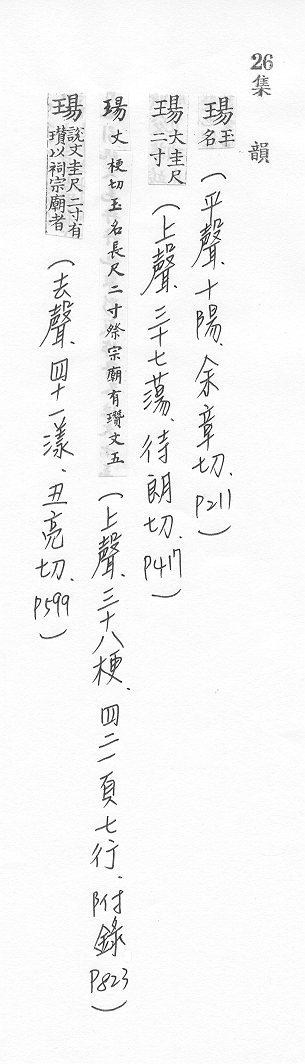 26集 韻
瑒玉名(平聲、十陽、余章切、P211)
瑒大圭尺二寸(上聲、三十七蕩、待朗切、P417)
瑒丈梗切玉名長尺二寸祭宗廟有瓚文五(上聲、三十八梗、四二一頁七行、附錄P823)
瑒說文圭尺二寸有瓚以祠宗廟者(去聲、四十一漾、丑亮切、P599)